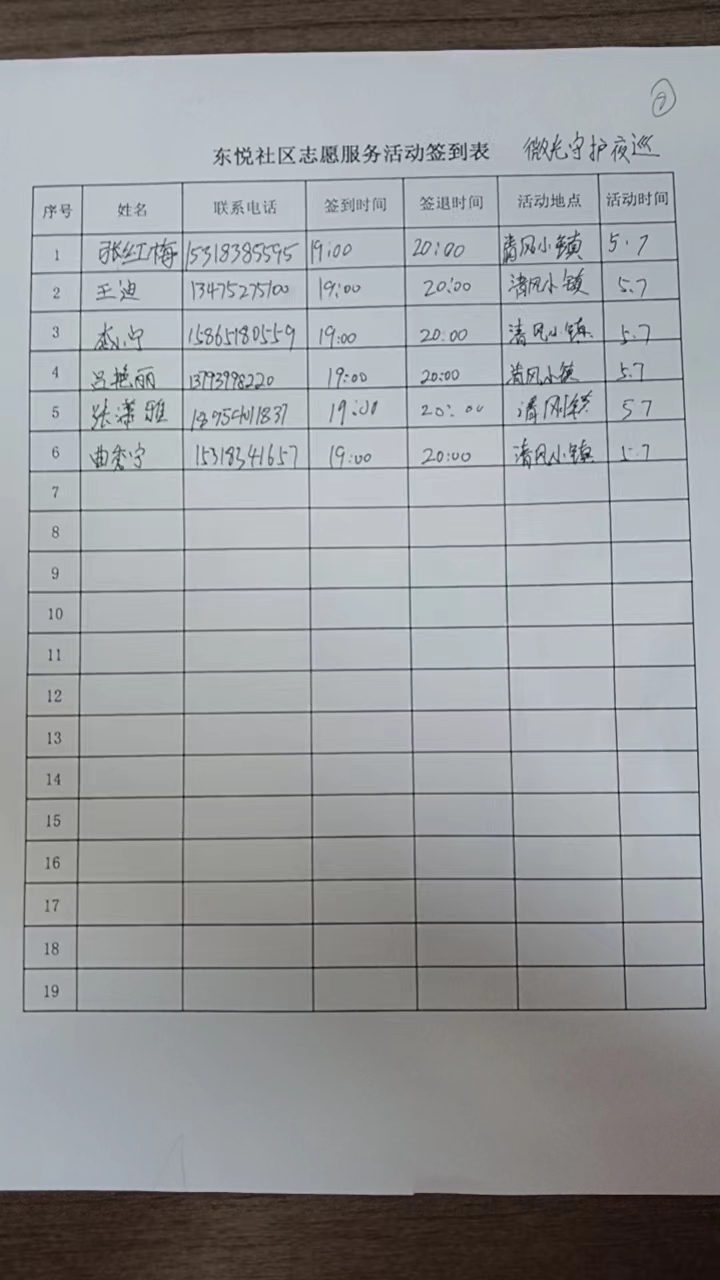 ⑦
东悦社区志愿服务活动签到表 微光守护夜巡
序号 姓名 联系电话 签到时间 签退时间 活动地点 活动时间
1 张红梅 15318385595 19:00 20:00 清风小镇 5.7
2 王迪 13475275100 19:00 20:00 清风小镇 5.7
3 李宁 15865180559 19:00 20:00 清风小镇 5.7
4 吕艳丽 13793798220 19:00 20:00 清风小镇 5.7
5 张潇雅 19:00 20:00 5 7
6 曲秀宁 15318341657 19:00 20:00 清风小镇 5.7
7
8
9
10
11
12
13
14
15
16
17
18
19